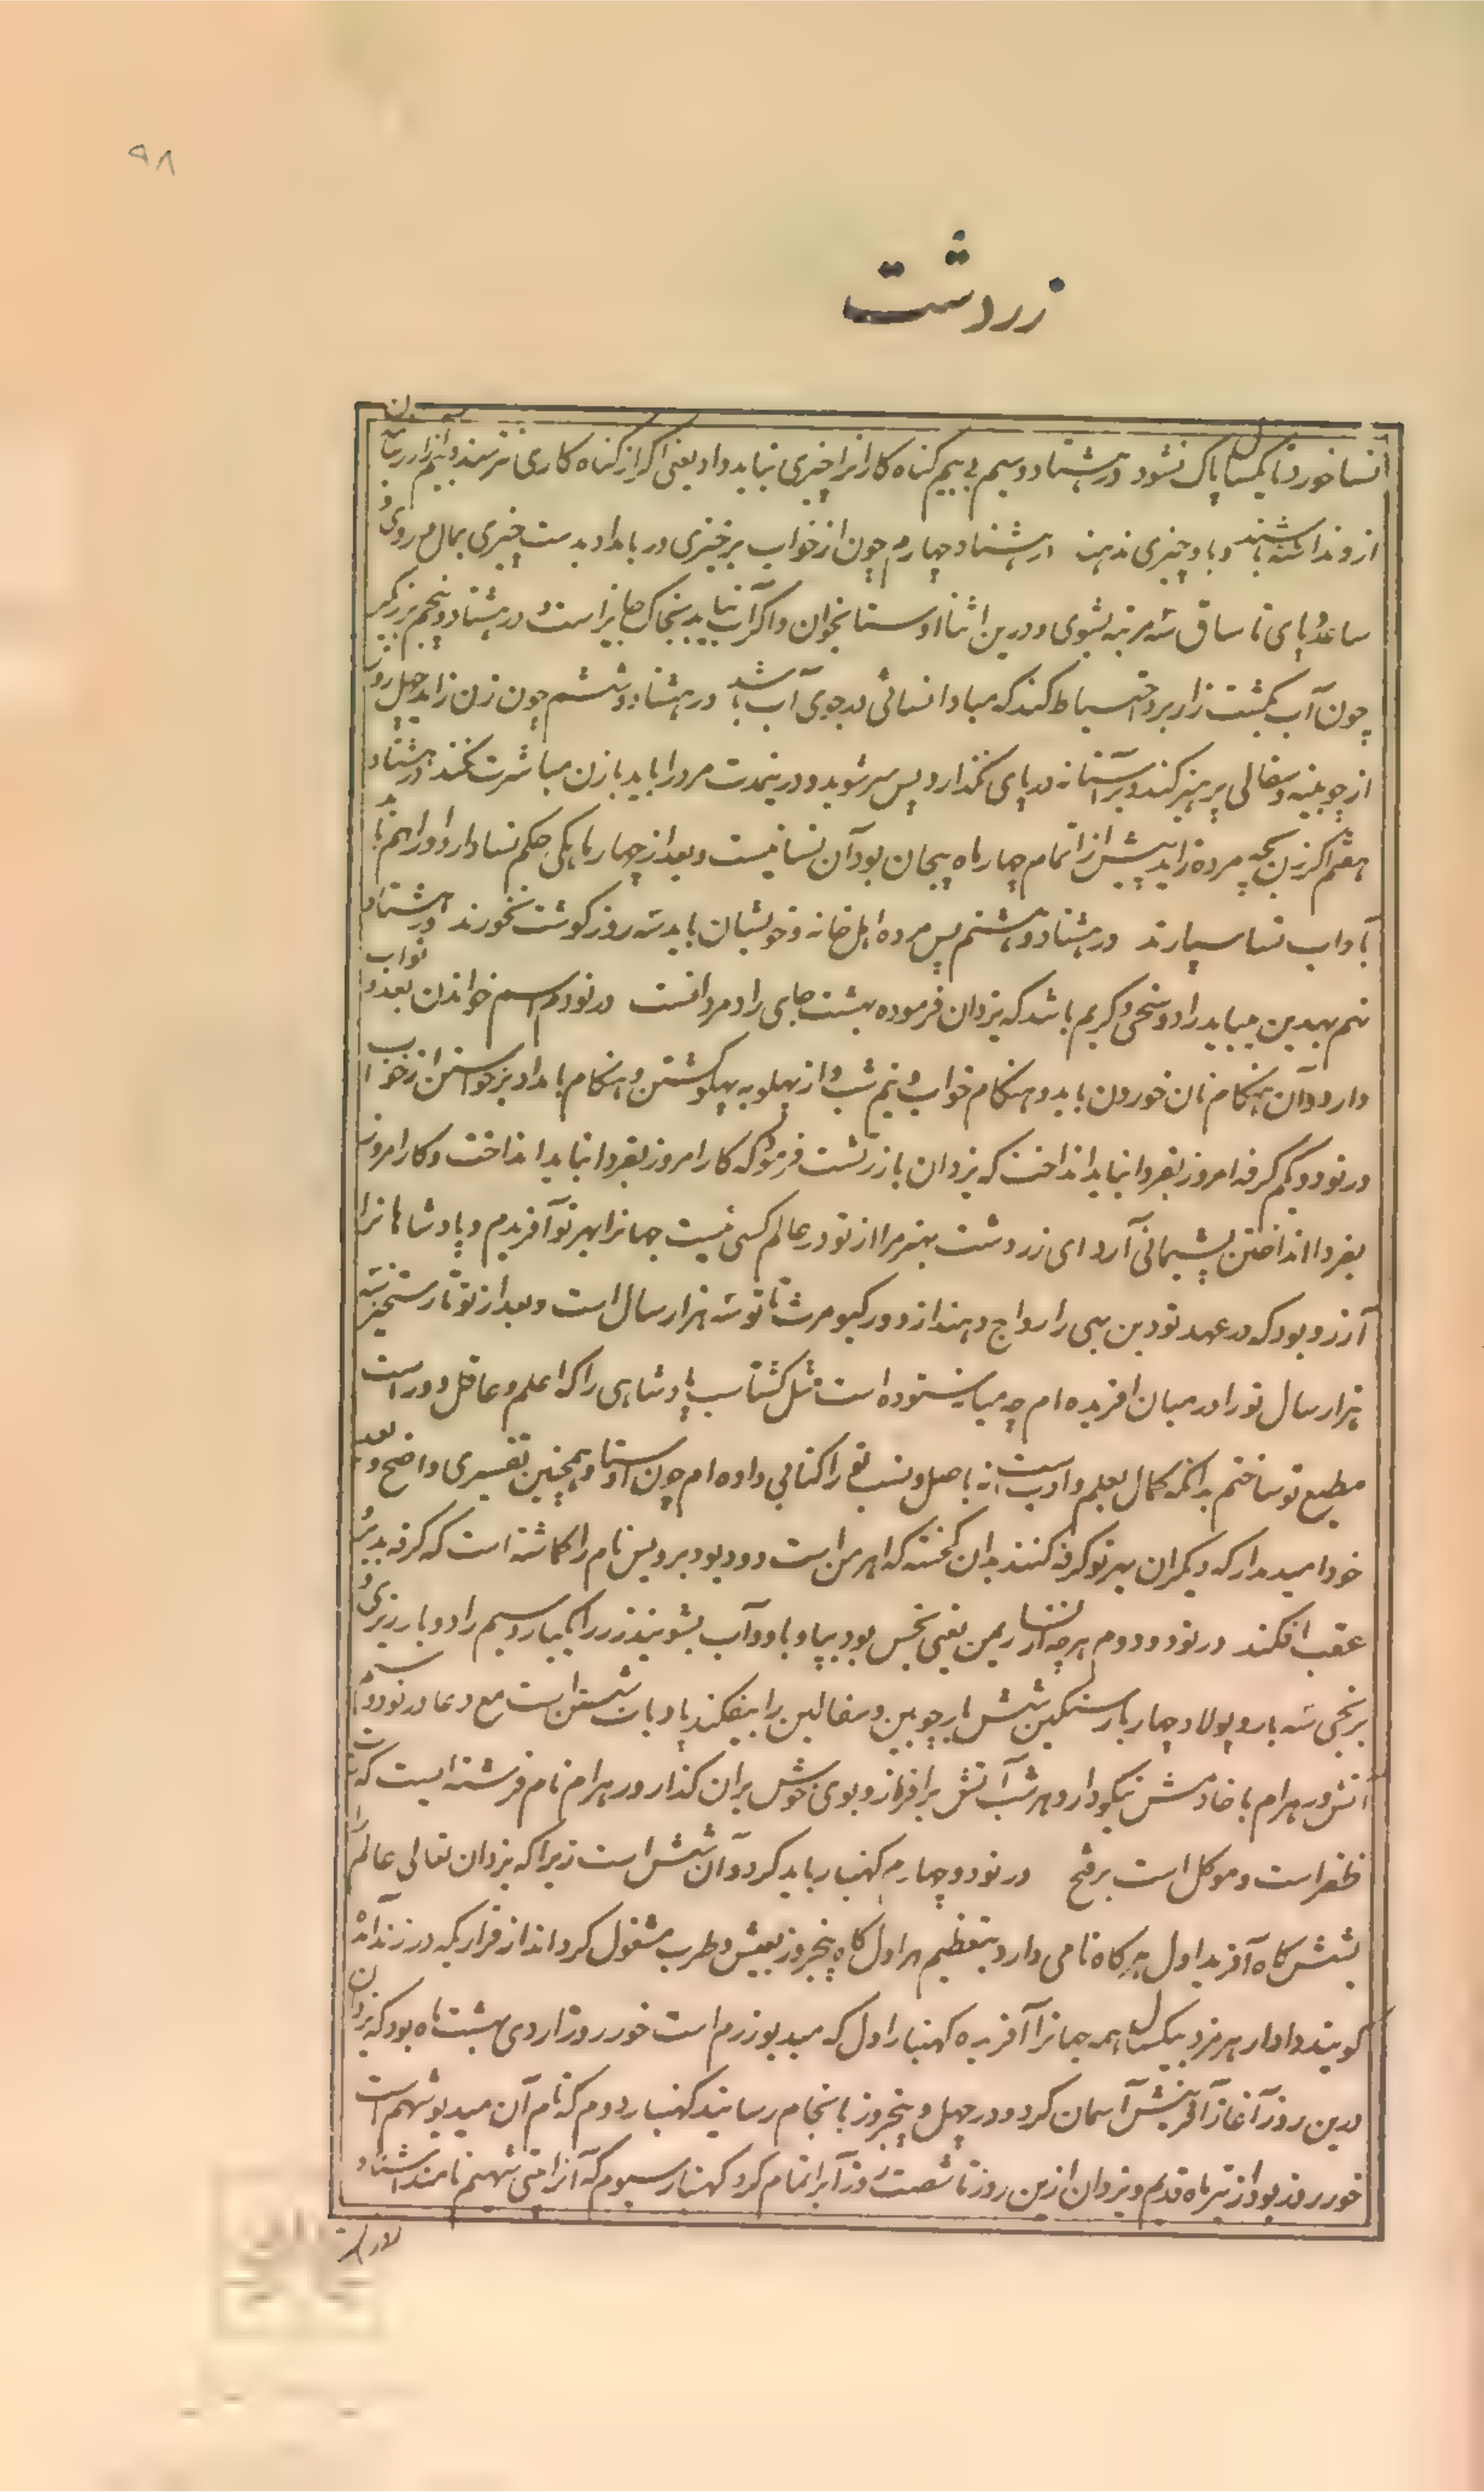 ۹۸
زردشت
نسا خورد تا یکسال پاک نشود در هشتاد و سیم بی بیم گناه کارانرا چیزی نباید داد یعنی اگر از گناه کاری نترسند و بیم
از و نداشته باشند و با و چیزی ندهند در هشتاد و چهارم چون از خواب برخیزی در بامداد بدست چیزی بمال و روی و
ساعد و پای تا ساق سه مرتبه بشوی و درین اثنا اوستا بخوان و اگر آب نیابد بخاک جایز است و در هشتاد و پنجم برزیگر
چون آب بکشت زار برد احتیاط کند که مبادا نسائی در جوی آب باشد در هشتاد و ششم چون زن زاید چهل روز
از چوبینه و سفالی پرهیز کند و بر آستانه در پای نگذارد پس سر شوید و درینمدت مرد را باید با زن مباشرت نکند در هشتاد
هفتم اگر زن بچه مرده زاید پیش از اتمام چهار ماه بیجان بود آن نسا نیست و بعد از چهار ماهگی حکم نسا دارد او را هم با
آداب نسا سپارند در هشتاد و هشتم پس مرده اهل خانه و خویشان باید سه روز گوشت نخورند در هشتاد
نهم بهدین میباید راد و سخی و کریم باشد که یزدان فرموده بهشت جای راد مردانست در نودم اسم خواندن بعد و ثواب
دارد و آن هنگام نان خوردن باید و هنگام خواب و نیم شب و از پهلو به پهلو گشتن و هنگام بامداد برخواستن از خواب
در نود و یکم کرفه امروز بفردا نباید انداخت که یزدان با زرتشت فرمود که کار امروز بفردا نباید انداخت و کار امروز
بفردا انداختن پشیمانی آرد ای زردشت بهتر مرا از تو در عالم کسی نیست جهانرا بهر تو آفریدم و پادشاهانرا
آرزو بود که در عهد تو دین بهی را رواج دهند از دور کیومرث تا تو سه هزار سال است و بعد از تو تا رستخیز سه
هزار سال تو را در میان افریده ام چه میانه ستوده است مثل گشتاسب پادشاهی را که اعلم و عاقل دور است
مطیع تو ساختم بدانکه کمال بعلم و ادب است نه باصل و نسب تو را کتابی داده ام چون اوستا و همچنین تفسیری واضح و بعد
خود امید مدار که دیگران بهر تو کرفه کنند بدان که اهرمن است دو دیو دیر و پس نام را گماشته است که کرفه بدیر و
عقب افکند در نود و دوم هرچه از نسا ریمن یعنی نجس بود بپا و با دو آب بشویند زر را یکبار و سیم را دو بار ریزی و
برنجی سه بار و پولاد چهار بار سنگین شش بار چوبین و سفالین را بیفکند پادیاب شستن است مع دعا در نود و سیم
آتش ورهرام با خادمش نیکو دارد هر شب آتش برافرازد و بوی خوش بران گذارد ورهرام نام فرشته ایست که
ظفر است و موکل است بر فتح در نود و چهارم کهنبار باید کرد و آن شش است زیرا که یزدان تعالی عالم را
بشش گاه آفرید اول هر گاه نامی دارد بتعظیم هر اول گاه پنجروز بعیش و طرب مشغول گرداند از قراریکه در زند آمده
گویند دادار هرمزد بیکسال همه جهانرا آفریده کهنبار اول که میدیوزرم است خور روز اردی بهشت ماه بود که یزدان
درین روز آغاز آفرینش آسمان کرد و در چهل و پنجروز بانجام رسانید کهنبار دوم که نام آن میدیوشهم است
خور روز بود از تیر ماه قدیم و یزدان ازین روز تا شصت روز آبرا تمام کرد کهنبار سیوم که آنرا پتی شهیم نامند اشتاد